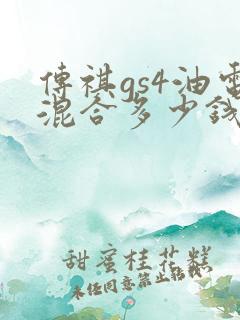 傳祺gs4油電
混合多少錢
甜蜜桂花糕
未经同意禁止转载